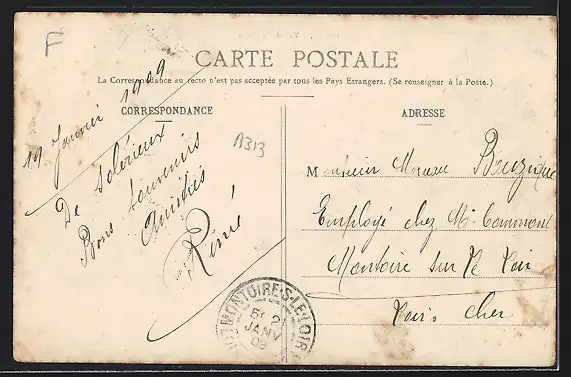 F
CARTE POSTALE
La Correspondance au recto n'est pas acceptée par tous les Pays Etrangers. (Se renseigner à la Poste.)
CORRESPONDANCE
ADRESSE
19 Janvier 1909
De
Bons souvenirs
Amitiés
Réné
A313
Monsieur Moreau
Employé chez Mr
Montoire sur Le Loir
Loir & Cher
MONTOIRE-S-LE-LOIR
JANV
09